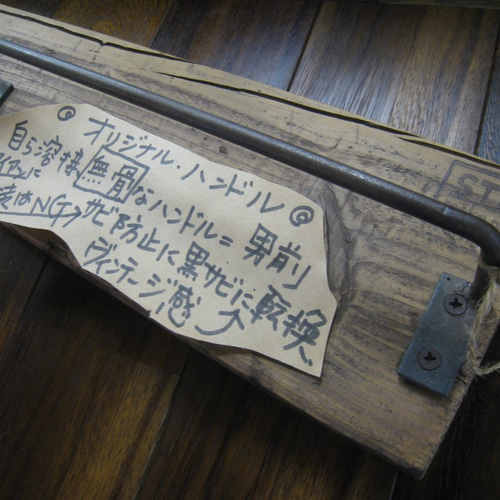 ◎ オリジナル・ハンドル ◎
自ら溶接
無骨なハンドル=男前
塗装はNG→サビ防止に黒サビに転換、
ヴィンテージ感↗
ST